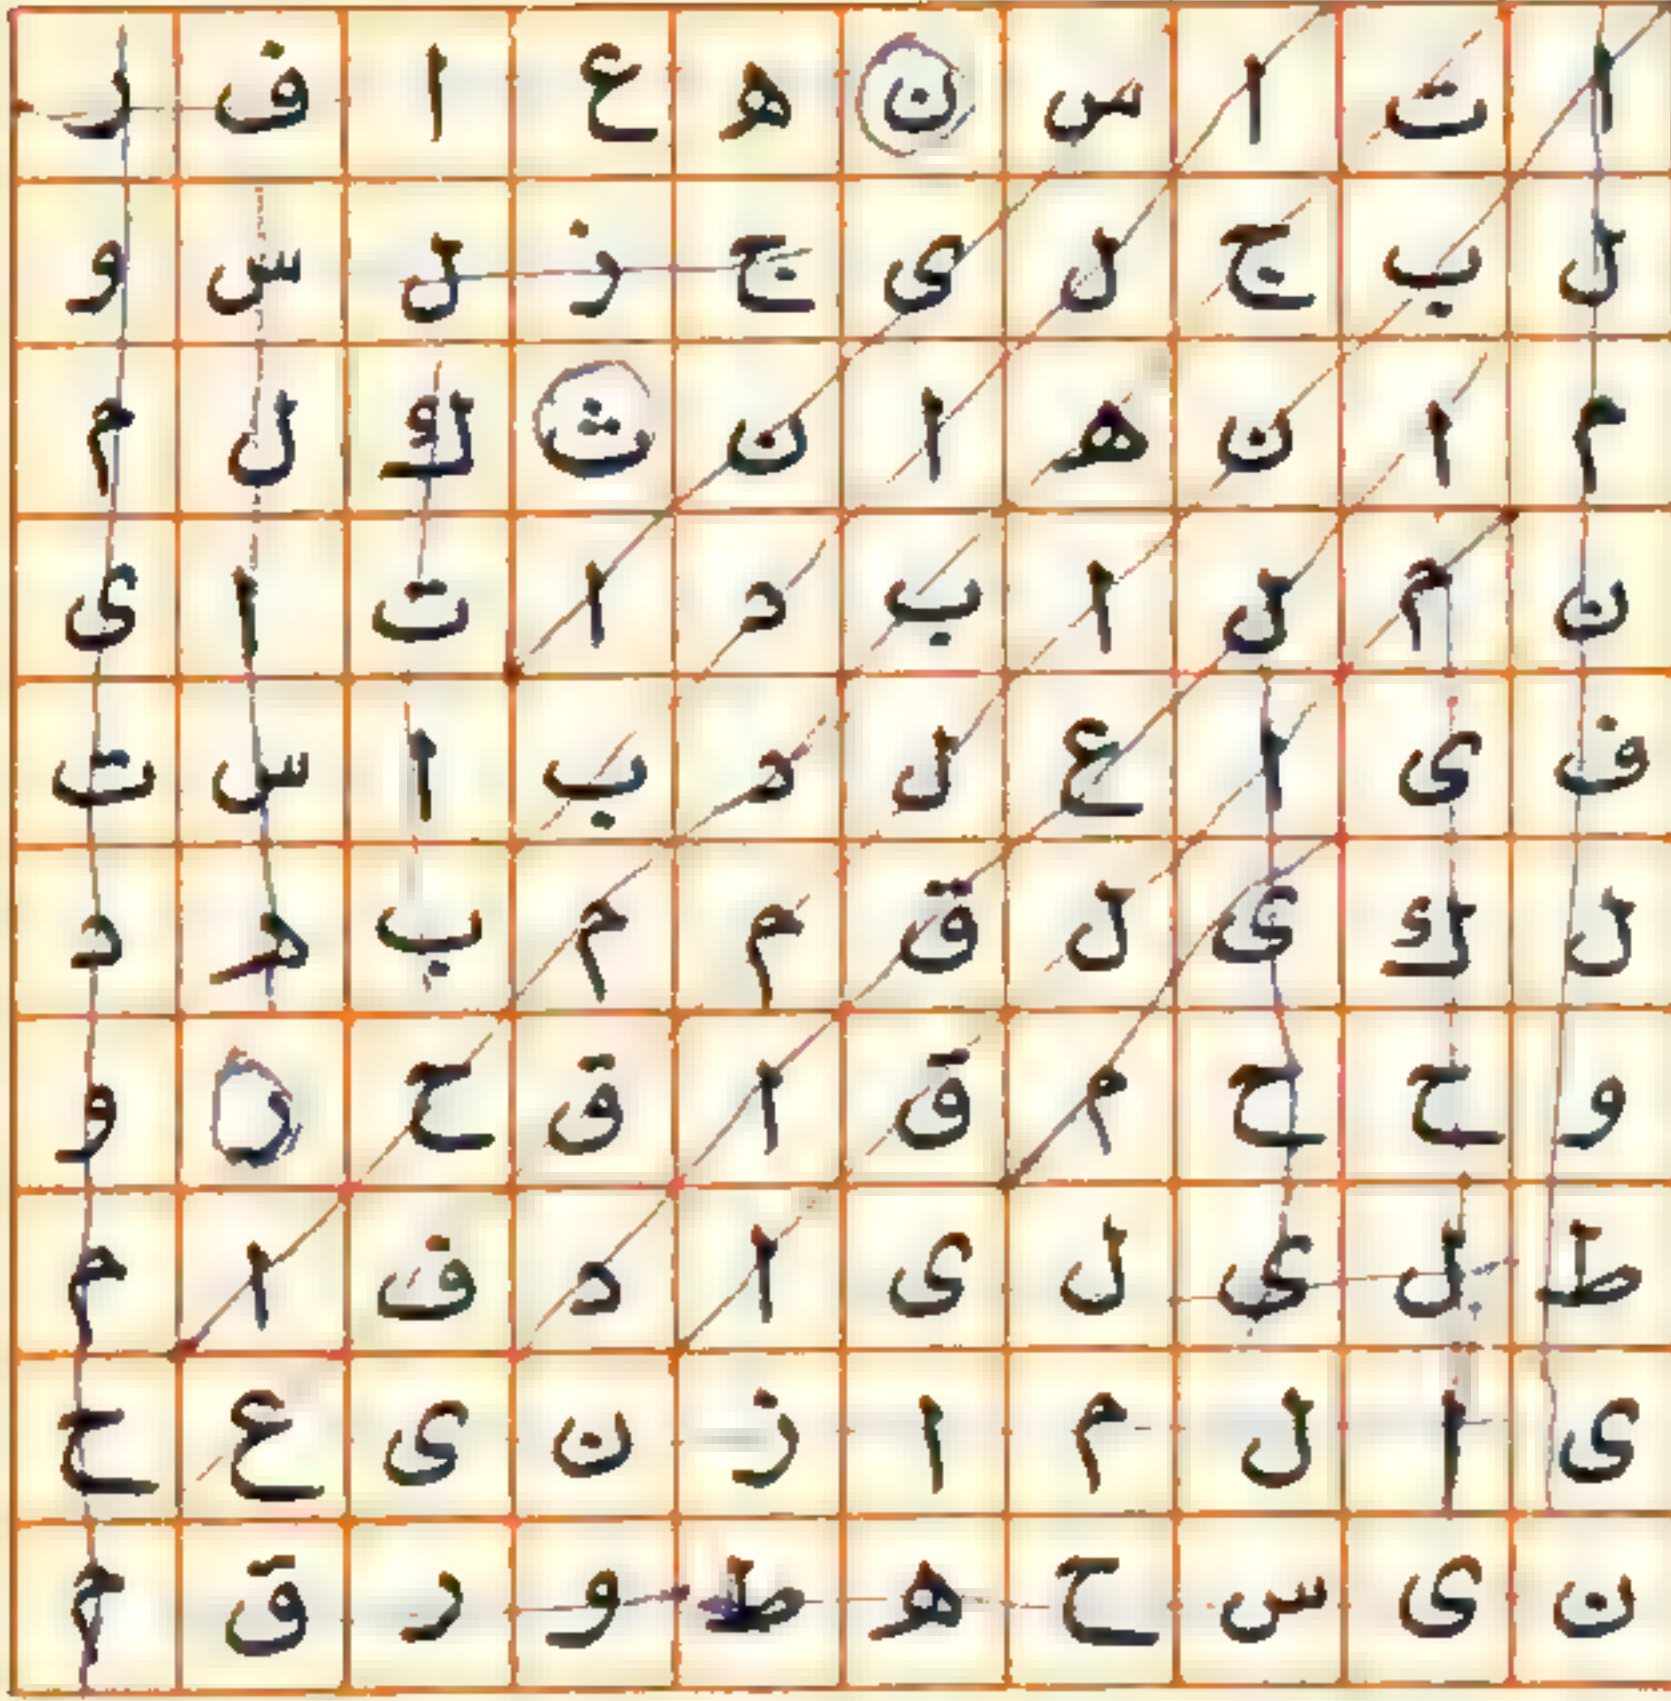 ا ت ا س ن ه ع ا ف ر
ل ب ج ل ى ج ز ل س و
م ا ن ه ا ن ث ك ل م
ن م ل ا ب د ا ت ا ى
ف ى ا ع ل د ب ا س ت
ل ك ى ل ق م م ب د د
و ح ح م ق ا ق ح ر و
ط ل ي ل ى ا د ف ا م
ى ا ل م ا ز ن ى ع ح
ن ى س ح ه ط و ر ق م